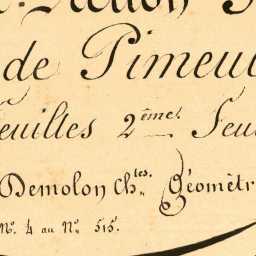 de Pimeu
euilles 2ème Feu
Demolon Ch.tes Géomètr
Nº. 4 au Nº 515.